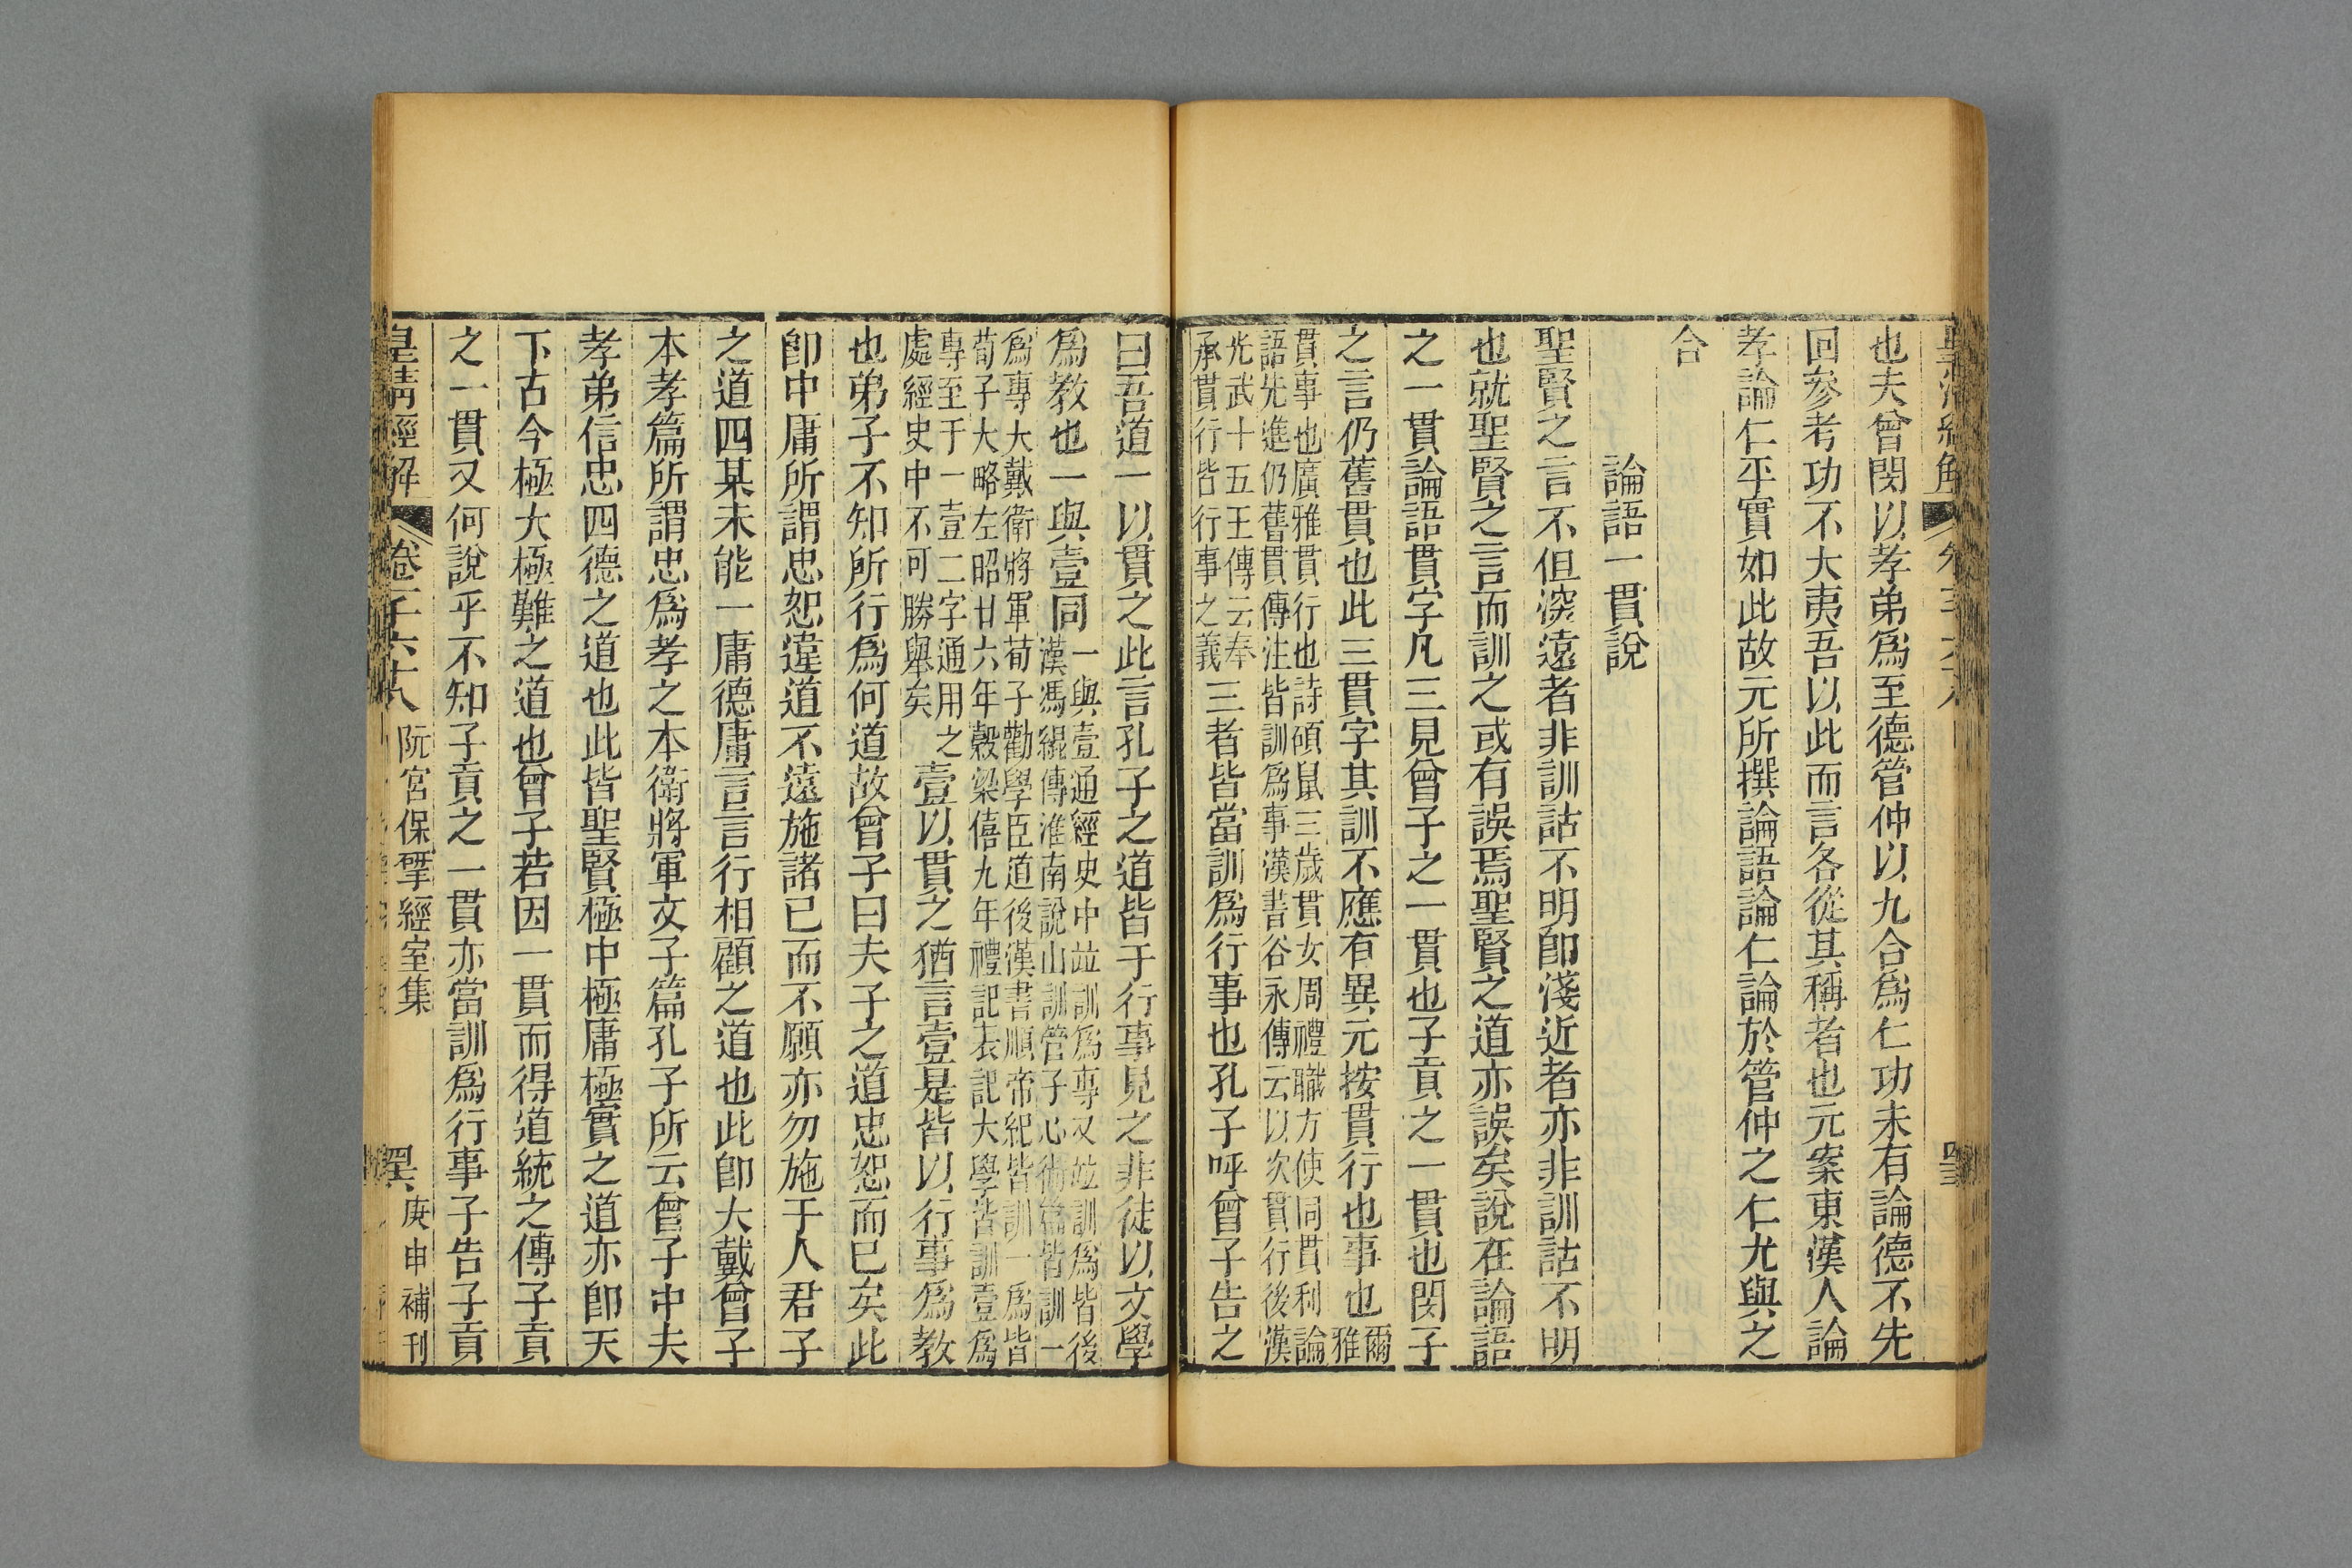 也夫曾閔以孝弟爲至德管仲以九合爲仁功未有論德不先
回參考功不大夷吾以此而言各從其稱者也元案東漢人論
孝論仁平實如此故元所撰論語論仁論於管仲之仁尤與之
合
論語一貫說
聖賢之言不但深遠者非訓詁不明卽淺近者亦非訓詁不明
也就聖賢之言而訓之或有誤焉聖賢之道亦誤矣說在論語
之一貫論語貫字凡三見曾子之一貫也子貢之一貫也閔子
之言仍舊貫也此三貫字其訓不應有異元按貫行也事也爾
雅
貫事也廣雅貫行也詩碩鼠三歲貫女周禮職方使同貫利論
語先進仍舊貫傳注皆訓爲事漢書谷永傳云以次貫行後漢
光武十五王傳云奉
承貫行皆行事之義三者皆當訓爲行事也孔子呼曾子告之
曰吾道一以貫之此言孔子之道皆于行事見之非徒以文學
爲教也一與壹同一與壹通經史中竝訓爲專又竝訓爲皆後
漢馮緄傳淮南說山訓管子心術篇皆訓一
爲專大戴衛將軍荀子勸學臣道後漢書順帝紀皆訓一爲皆
荀子大略左昭廿六年穀梁僖九年禮記表記大學皆訓壹爲
專至于一壹二字通用之
處經史中不可勝舉矣壹以貫之猶言壹是皆以行事爲教
也弟子不知所行爲何道故曾子曰夫子之道忠恕而已矣此
卽中庸所謂忠恕違道不遠施諸已而不願亦勿施于人君子
之道四某未能一庸德庸言言行相顧之道也此卽大戴曾子
本孝篇所謂忠爲孝之本衛將軍文子篇孔子所云曾子中夫
孝弟信忠四德之道也此皆聖賢極中極庸極實之道亦卽天
下古今極大極難之道也曾子若因一貫而得道統之傳子貢
之一貫又何說乎不知子貢之一貫亦當訓爲行事子告子貢
皇清經解
卷千六十八
阮宮保揅經室集
庚申補刊